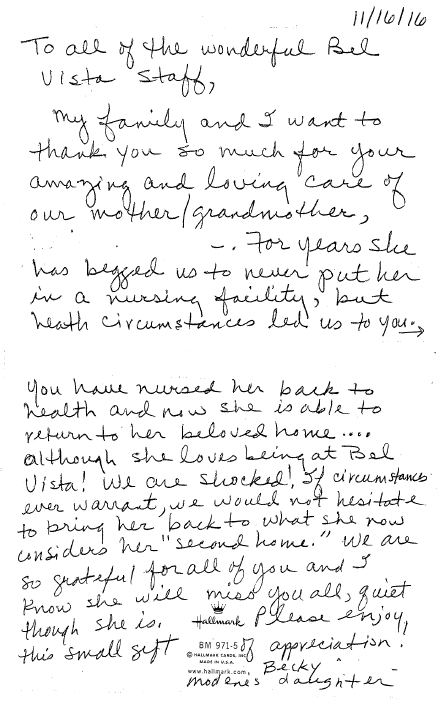 11/16/16
To all of the wonderful Bel
Vista Staff,
My family and I want to
thank you so much for your
amazing and loving care of
our mother/grandmother,
–. For years she
has begged us to never put her
in a nursing facility, but
heath circumstances led us to you.→
You have nursed her back to
health and now she is able to
return to her beloved home....
although she loves being at Bel
Vista! We are shocked! If circumstances
ever warrant, we would not hesitate
to bring her back to what she now
considers her "second home." We are
so grateful for all of you and I
know she will miss you all, quiet
though she is. Please enjoy,
Hallmark
this small gift of appreciation.
BM 971-5
© HALLMARK CARDS, INC.
MADE IN U.S.A.
www.hallmark.com
Becky
modenes daughter